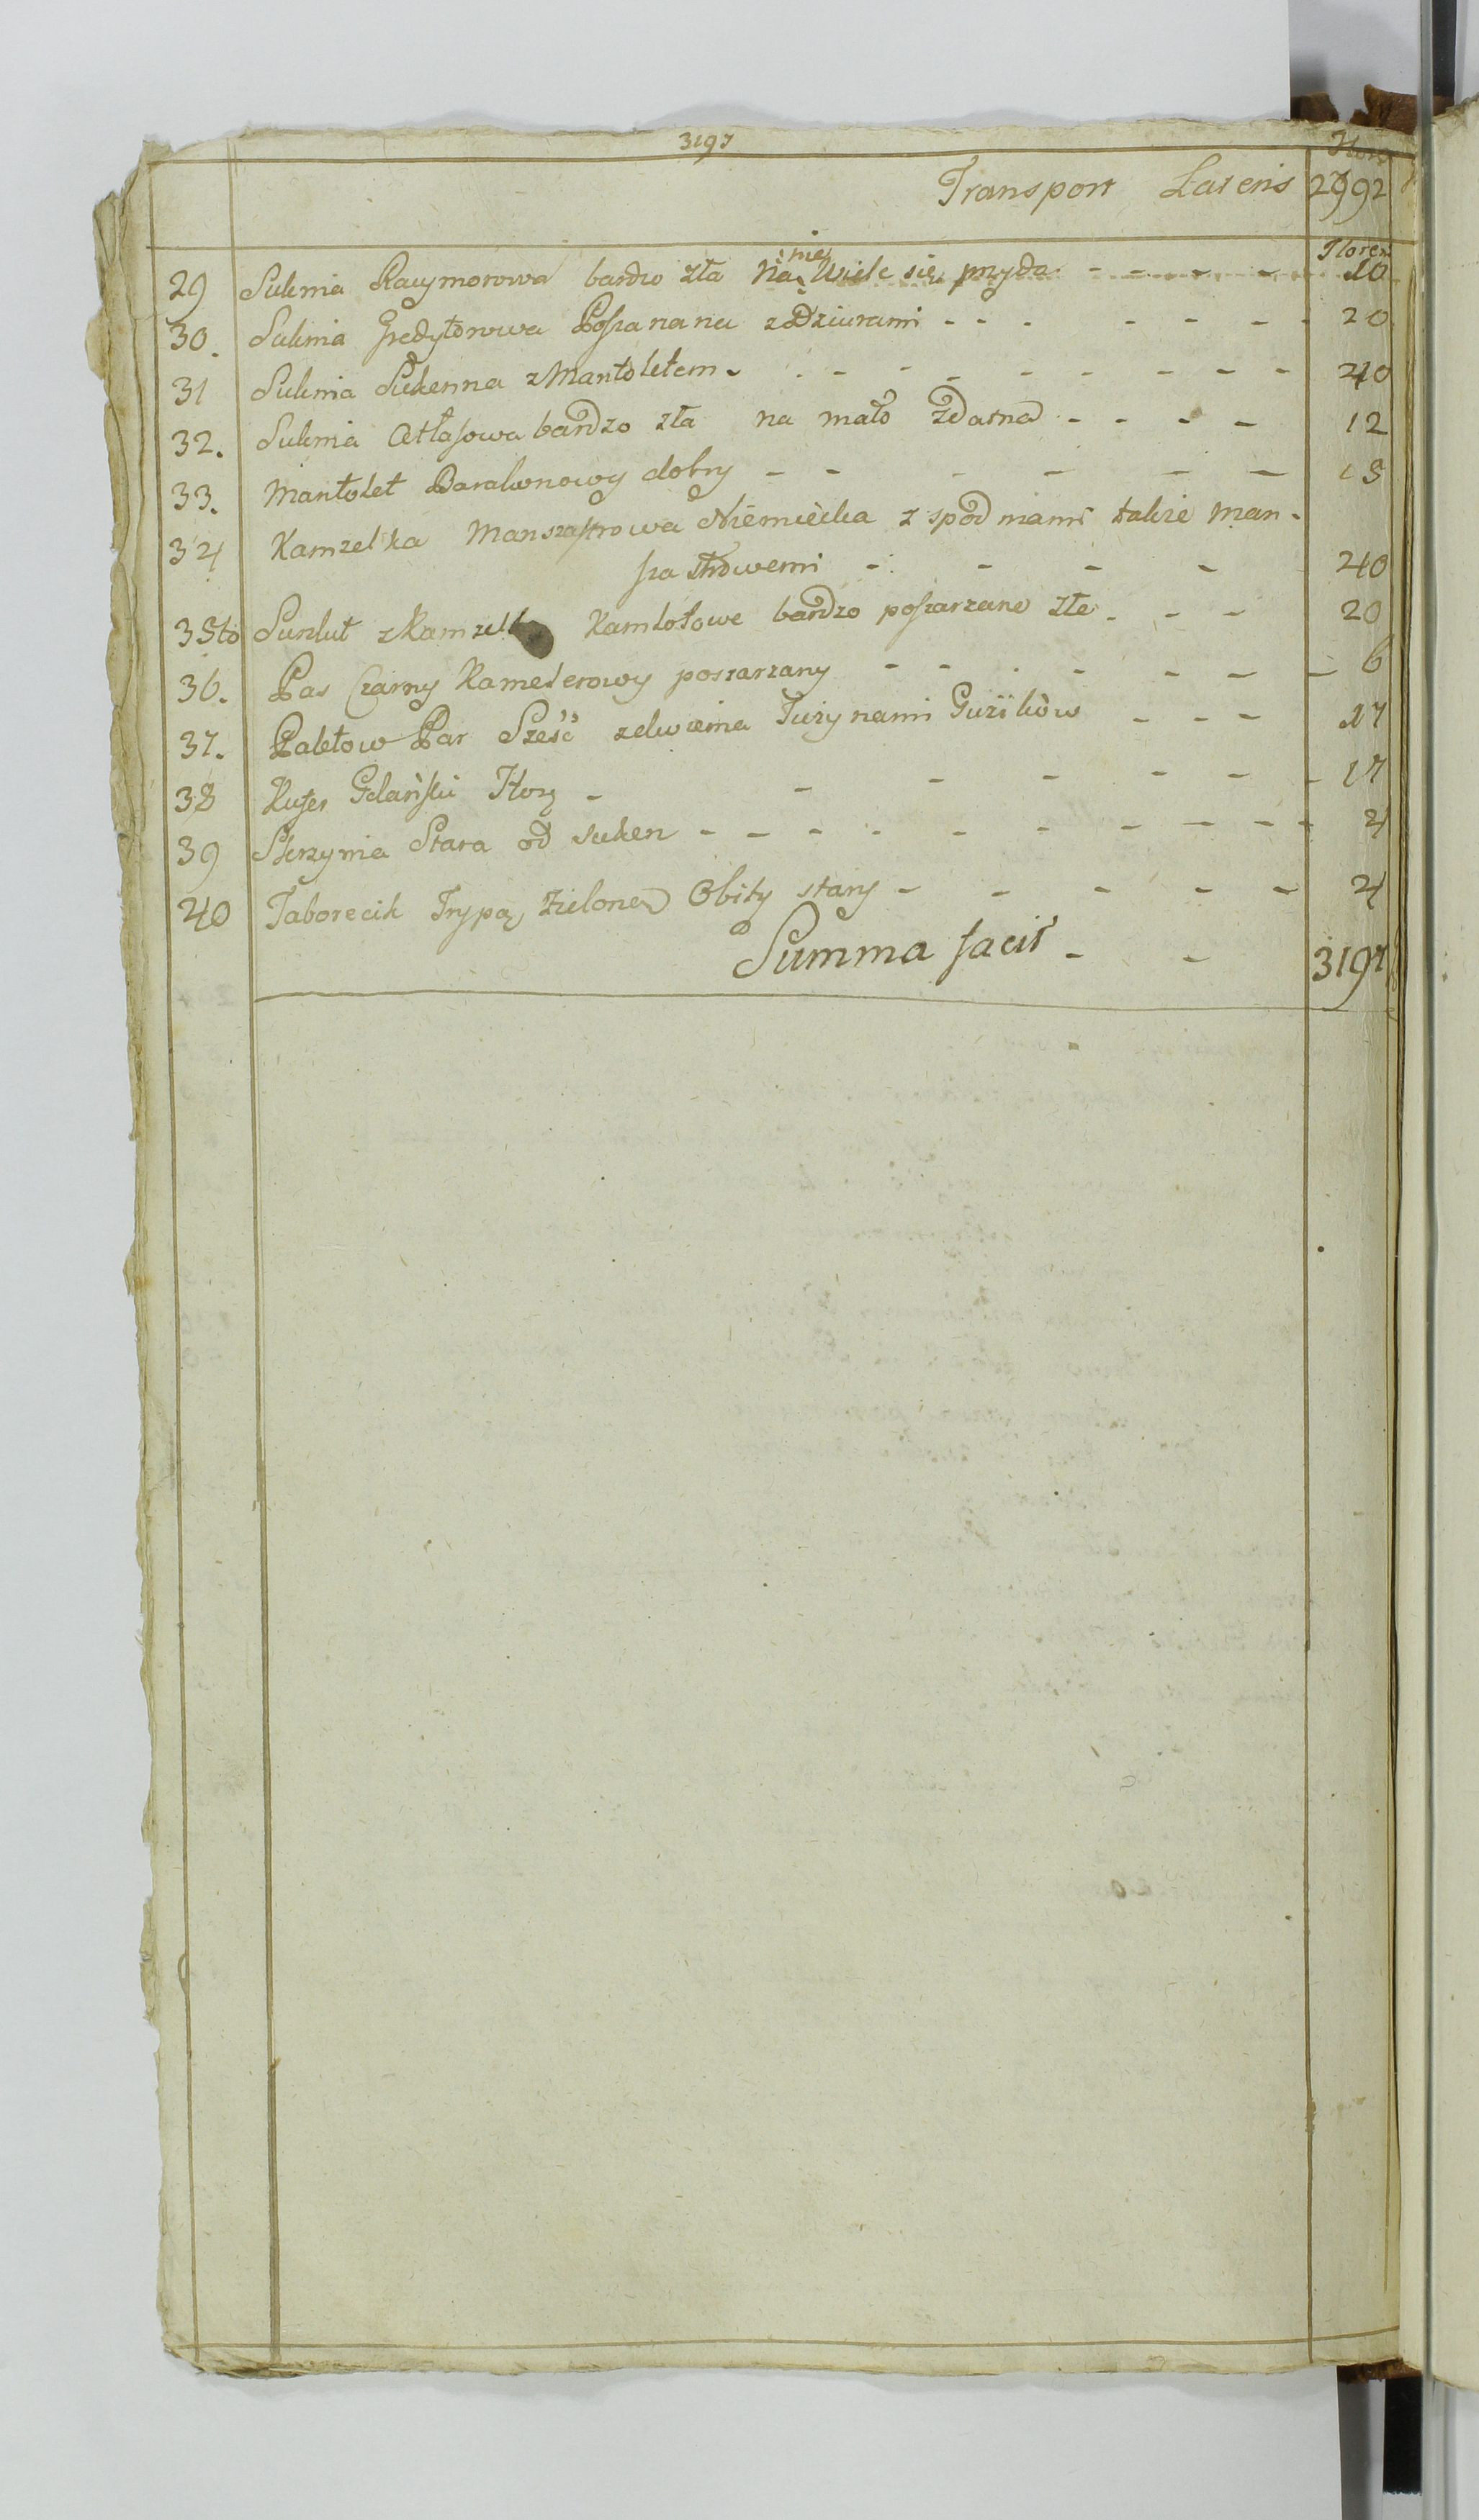 3197
Flore
Transport Lateris 2992
Floren
29 Suknia Raymorowa bardzo zła Na nie Wiele się przyda - - - - - 10
30. Suknia Gredytorowa Poszanana z Dziurami - - - - - - - 20
31 Suknia Sukenna z Mantoletem - - - - - - - - - 40
32. Suknia Atłasowa bardzo zła na mało zdatna - - - - 12
33. Mantolet Barakonowy dobry - - - - - - 18
34 Kamzelka Manszastrowa Niemiecka z spodniami takie Man-
szastrowemi - - - - 40
35to Surdut z Kamzelką Kamlotowe bardzo poszarzane złe - - - 20
36. Pas Czarny Kamelerowy poszarzany - - - - - - - 6
37. Paletow Par Sześć zdwiema Tuzynami Guzików - - - 17
38 Kufer Gdański Stary - - - - - - - 14
39 Skrzynia Stara od suken - - - - - - - - - - 4
40 Taborecik Trypą zieloną Obity stary - - - - - 4
Summa facit - - 3197